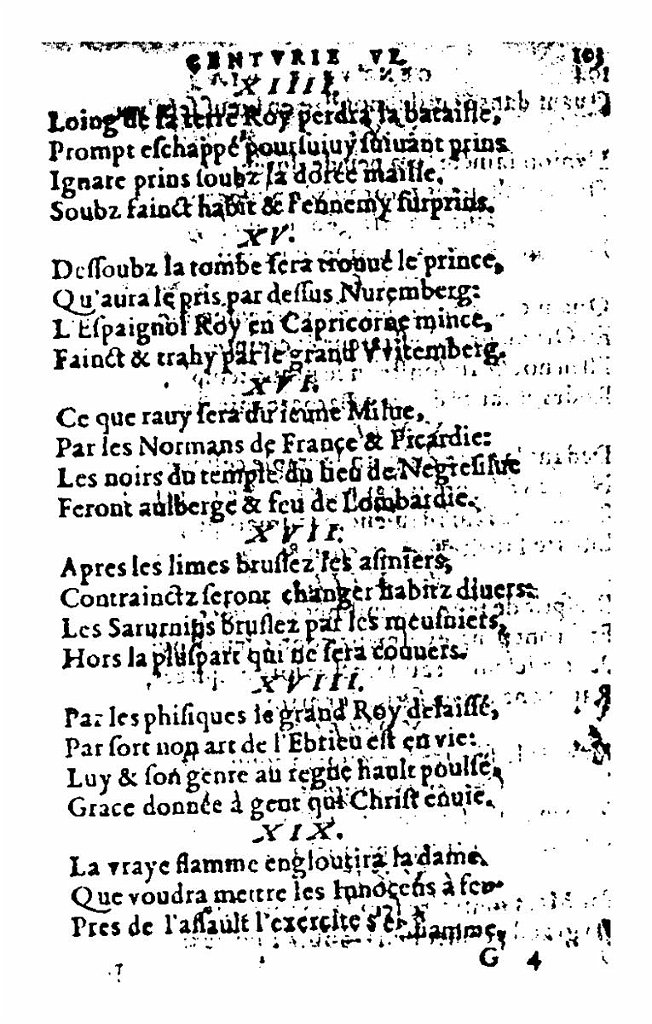 CENTVRIE VI. 103
XIIII.
Loing de sa terre Roy perdra la bataille,
Prompt eschappé poursuiuy suiuant prins
Ignare prins soubz la doree maille.
Soubz fainct habit & l'ennemy surprins.
XV.
Dessoubz la tombe sera trouué le prince,
Qu'aura le pris par dessus Nuremberg:
L'Espaignol Roy en Capricorne mince,
Fainct & trahy par le grand Vvitemberg.
XVI.
Ce que rauy sera du ieune Milue,
Par les Normans de France & Picardie:
Les noirs du temple du lieu de Negresilue
Feront aulberge & feu de Lombardie.
XVII.
Apres les limes bruslez les asiniers,
Contrainctz seront changer habitz diuers:
Les Saturnins bruslez par les meusniers,
Hors la pluspart qui ne sera couuers.
XVIII.
Par les phisiques le grand Roy delaissé,
Par sort non art de l'Ebrieu est en vie:
Luy & son genre au regne hault poulsé,
Grace donnée à gent qui Christ enuie.
XIX.
La vraye flamme engloutira la dame,
Que voudra mettre les Innocens à feu
Pres de l'assault l'exercite s'enflamme,
G 4